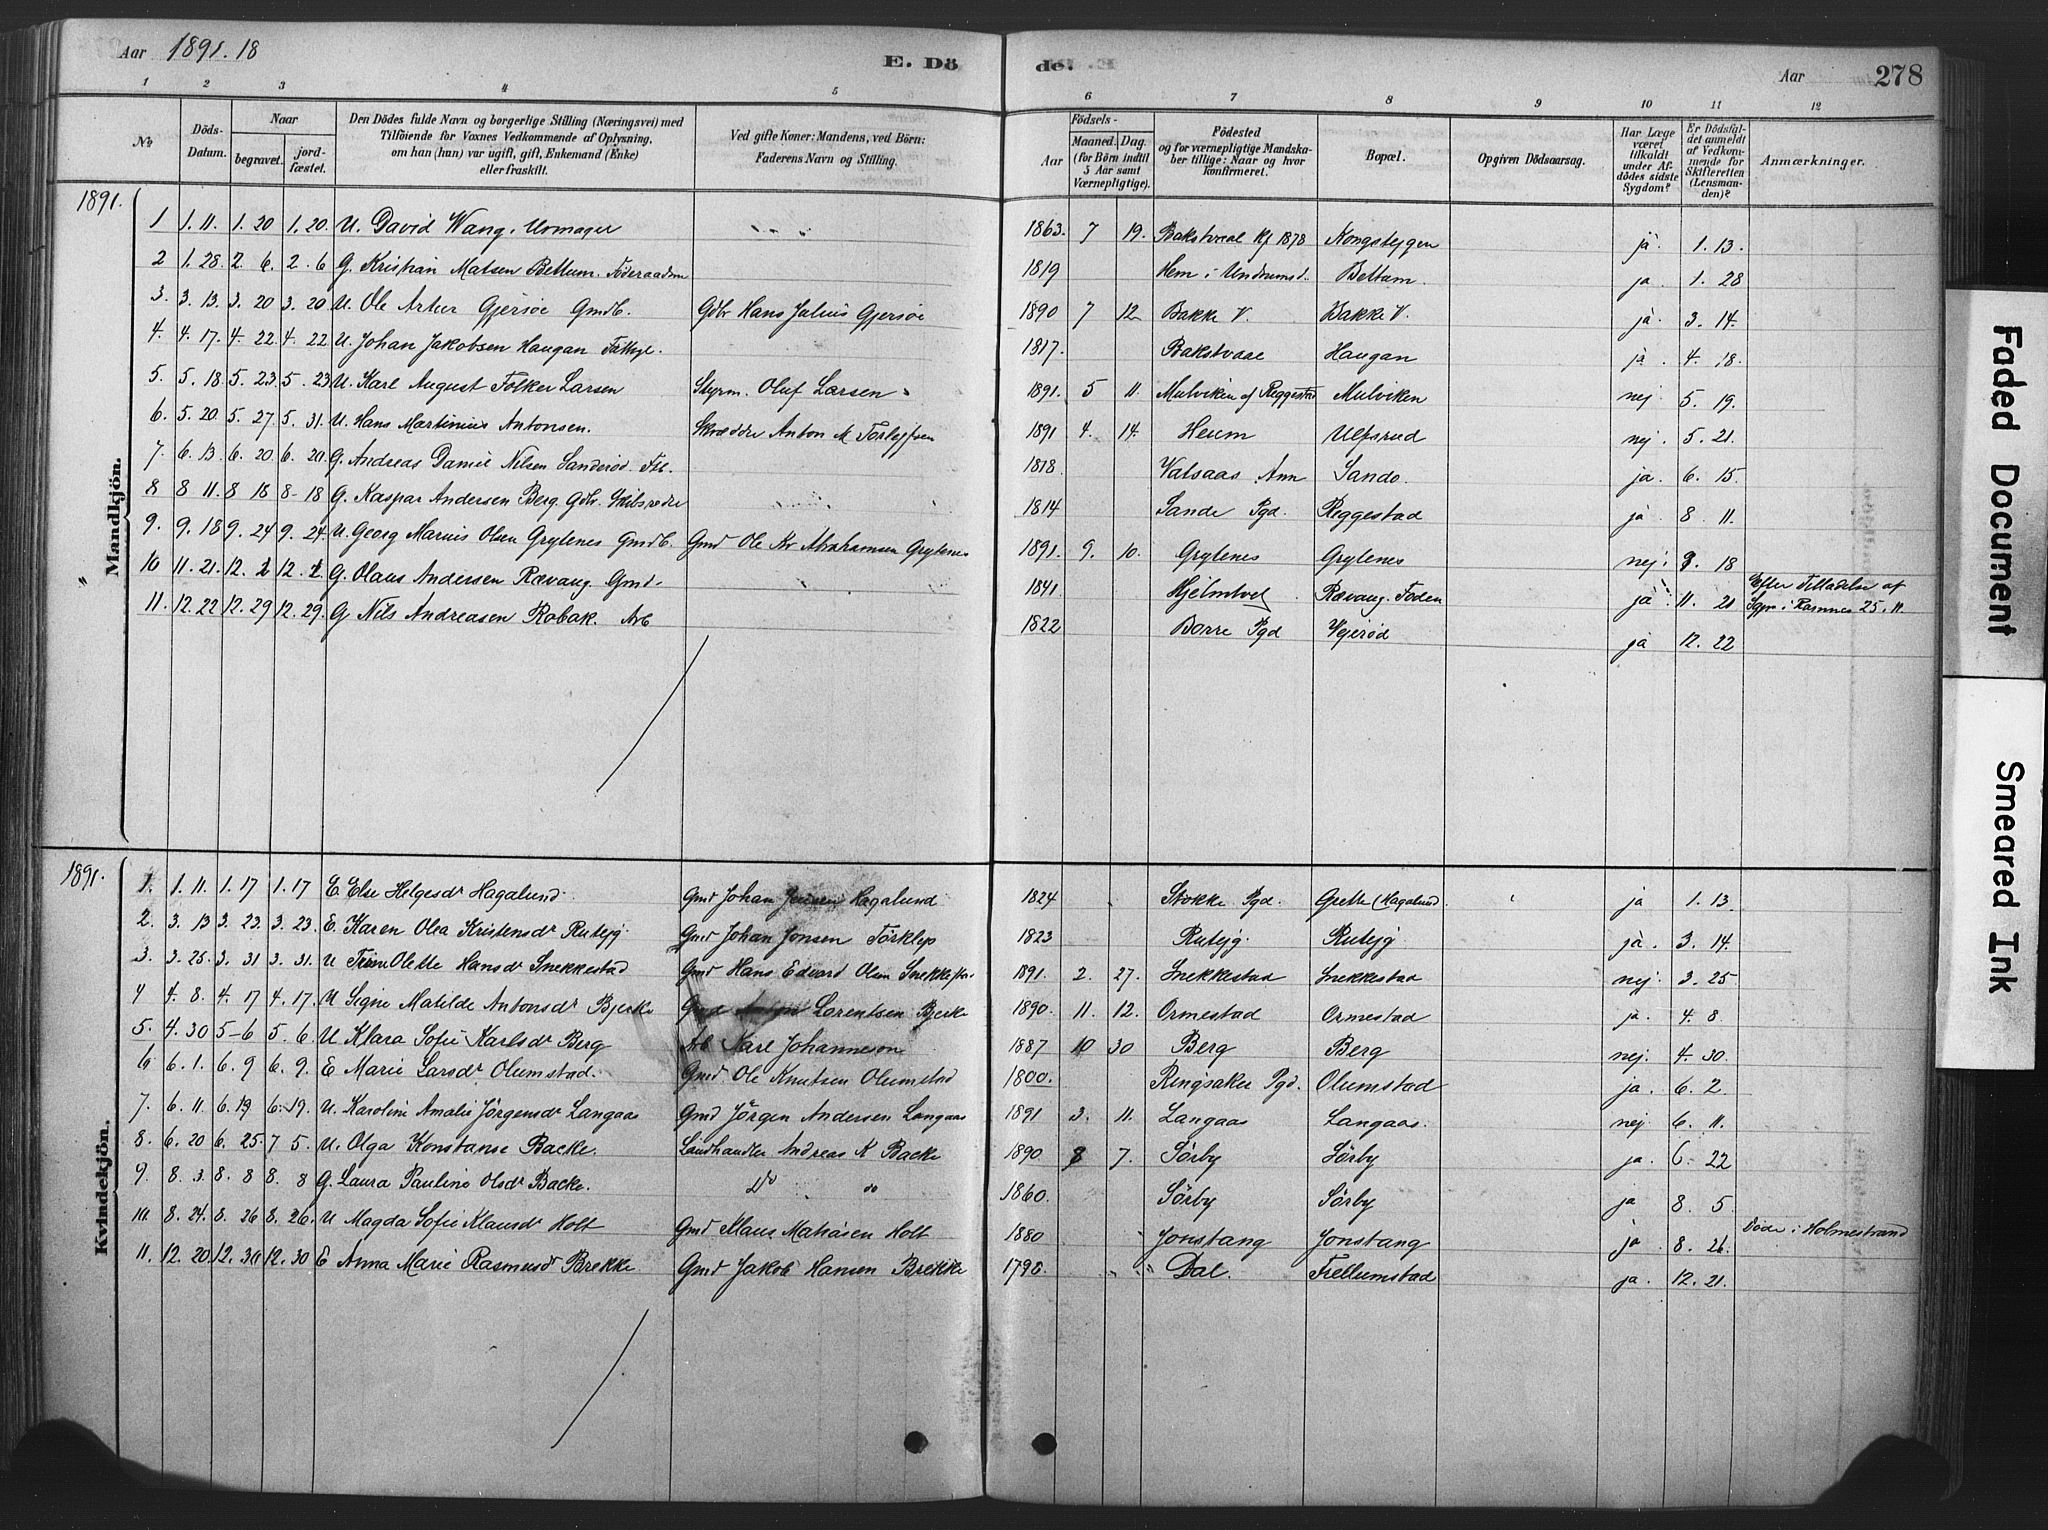 Aar 1891. 18
E. Dö
de.
Aar
278
1 2 3 4 5 6 7 8 9 10 11 12
No
Döds-
Datum.
Naar
begravet.
jord-
fæstet.
Den Dödes fulde Navn og borgerlige Stilling (Næringsvei) med
Tilföiende for Voxnes Vedkommende af Oplysning,
om han (hun) var ugift, gift, Enkemand (Enke)
eller fraskilt.
Ved gifte Koner: Mandens, ved Börn:
Faderens Navn og Stilling.
Födsels-
Aar
Maaned. Dag.
(for Börn indtil
5 Aar samt
Værnepligtige).
Födested
og for værnepligtige Mandska-
ber tillige: Naar og hvor
konfirmeret.
Bopæl.
Opgiven Dödsaarsag.
Har Læge
været
tilkaldt
under Af-
dödes sidste
Sygdom?
Er Dödsfal-
det anmeldt
af Vedkom-
mende for
Skifteretten
(Lensman-
den)?
Anmærkninger.
1891.
Mandkjön.
1 1. 11. 1. 20 1. 20. U. David Wang. Urmager 1863. 7 19. Kf 1878 ja. 1. 13.
2 1. 28. 2. 6. 2. 6 G. Kristian Matsen Bettum. Föderaadsm 1819 Hem i Undrumsd. Bettum. ja. 1. 28
3. 3. 13. 3. 20 3. 20. U. Ole Artur Gjersöe Gmdb. Gdbr Hans Julius Gjersöe 1890 7 12. Bakke V. Bakke V. ja. 3. 14.
4. 4. 17. 4. 22. 4. 22 U. Johan Jakobsen Haugan 1817. Haugan ja. 4. 18.
5. 5. 18. 5. 23 5. 23 U. Karl August Folker Larsen Styrm. Oluf Larsen 1891. 5 11. Mulviken af Reggestad Mulviken nej. 5. 19.
6. 5. 20. 5. 27 5. 31. U. Hans Martinius Antonsen. Skrædder Anton M 1891 4. 14. Heum Ulfsrud nej. 5. 21.
7. 6. 13. 6. 20 6. 20. G. Andreas Nilsen 1818. Valsaas Sando. ja. 6. 15.
8 8 11. 8 18 8-18 G. Kaspar Andersen Berg. Gdbr. Skibsreder 1814 Sande Pgd. Reggestad ja. 8. 11.
9. 9. 18 9. 24 9. 24 U. Georg Marius Olsen Grytenes Gmdb. Gmd Ole Kr Abrahamsen Grytenes 1891. 9. 10. Grytenes Grytenes nej. 9. 18
10 11. 21. 12. 2 12. 2. G. Olaus Andersen Rævaug. Gmd. 1841. Hjelmtvet Rævaug. Foden ja. 11. 21 Efter Tilladelse af
Sgpr i Ramnes 25. 11.
11. 12. 22 12. 29 12. 29. G Nils Andreasen Robak. Arb 1822 Borre Pgd Vejeröd ja 12. 22
1891.
Kvindekjön.
1. 1. 11. 1. 17 1. 17 E Else Helgesdr Hagalund. Gmd Johan Jensen Hagalund 1824 Stokke Pgd. Grette (Hagalund. ja 1. 13.
2. 3. 13 3. 23. 3. 23. E. Karen Olea Kristensdr Rutejg Gmd Johan Jonsen Törklep 1823 Rutejg. Rutejg. ja. 3. 14.
3. 3. 25. 3. 31 3. 31. U Olette Hansdr Snekkestad Gmd Hans Edvard Olsen 1891. 2. 27. Snekkestad Snekkestad nej. 3. 25
4 4. 8. 4. 17 4. 17. U Signe Matilde Antonsdr Bjerke Gmd Anton Lorentsen Bjerke 1890. 11. 12. Ormestad Ormestad ja. 4. 8.
5. 4. 30 5-6 5. 6 U Klara Sofie Karlsdr Berg Arb Karl Johanneson 1887 10 30 Berg Berg nej. 4. 30.
6 6. 1. 6. 9 6. 9. E Marie Larsdr. Olumstad. Gmd. Ole Knutsen Olumstad 1800. Ringsaker Pgd. Olumstad ja. 6. 2.
7. 6. 11 6. 19 6. 19. U. Karoline Amalie Jörgensdr Langaas Gmd Jörgen Andersen Langaas 1891 3. 11. Langaas Langaas. nej. 6. 11.
8. 6. 20 6. 25. 7 5. U. Olga Konstanse Backe. Landhandler Andreas K Backe 1890 8 7. Sörby Sörby ja. 6. 22
9. 8. 3. 8. 8 8. 8 G. Laura Pauline Olsdr Backe. Do do 1860. Sörby Sörby ja 8. 5.
10. 8. 24. 8. 26 8. 26. U Magda Sofie Klausdr Holt Gmd Klaus Matiasen Holt 1880 Jonstang Jonstang ja 8. 26. Döde i Holmestrand
11. 12. 20. 12. 30 12. 30 E Anna Marie Rasmusdr Brekke Gmd Jakob Hansen Brekke 1790. Dal. Frellumstad ja. 12. 21.
Faded Document
Smeared Ink